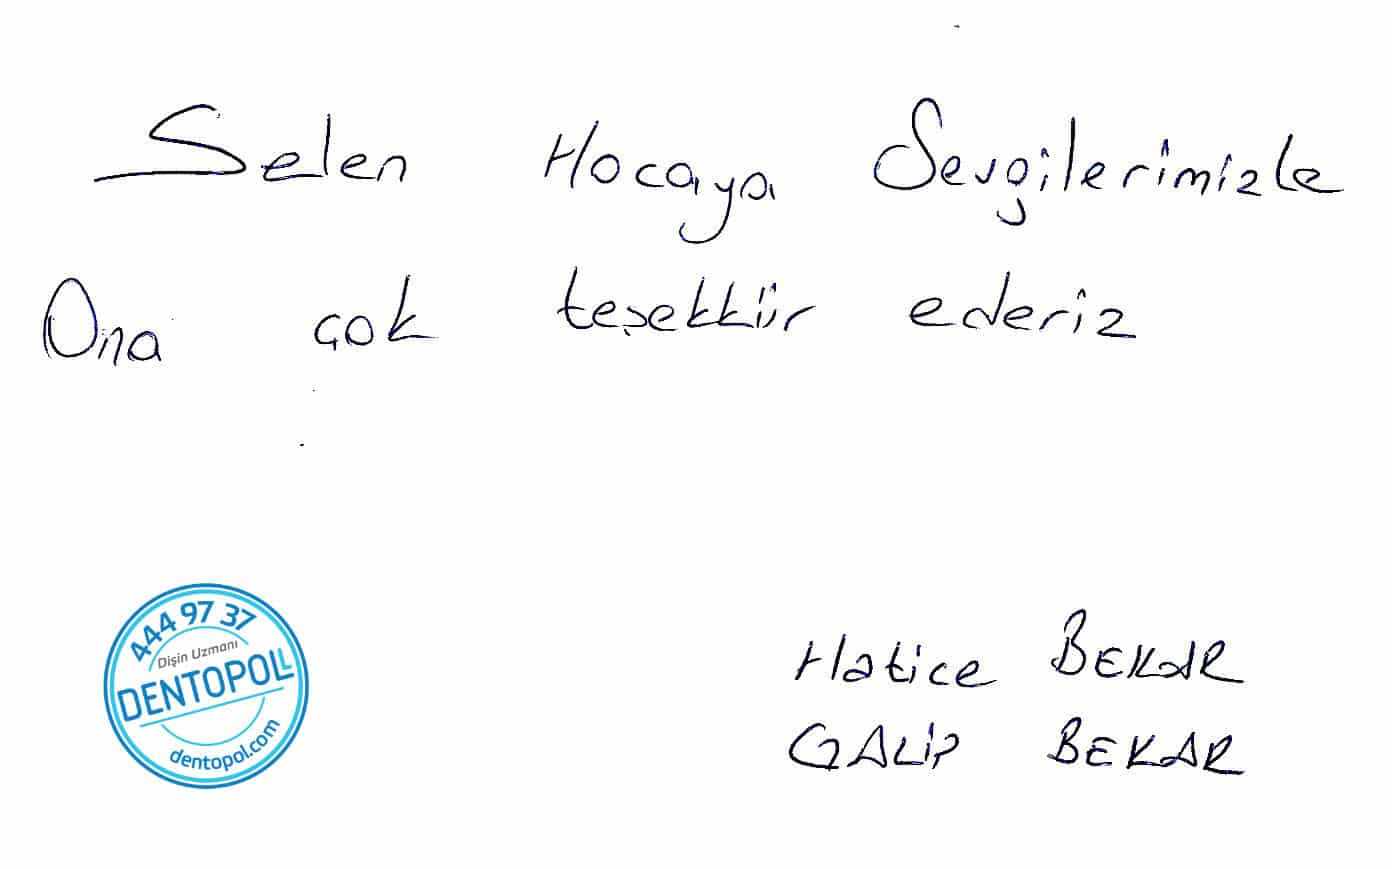 Selen Hocaya Sevgilerimizle
Ona çok teşekkür ederiz
444 97 37
Dişin Uzmanı
DENTOPOLL
dentopol.com
Hatice BEKAR
GALİP BEKAR